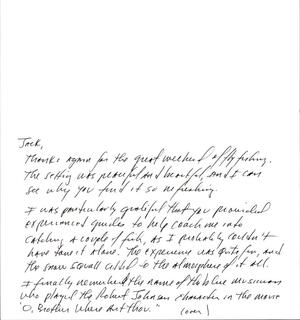 Jack,
Thanks again for the great weekend of fly fishing.
The setting was peaceful and beautiful, and I can
see why you find it so refreshing.
I was particularly grateful that you provided
experienced guides to help coach me into
catching a couple of fish, as I probably couldn't
have done it alone. The experience was quite fun, and
the snow squall added to the atmosphere of it all.
I finally remembered the name of the blues musician
who played the Robert Johnson character in the movie
"O, Brother Where Art Thou."
(over)